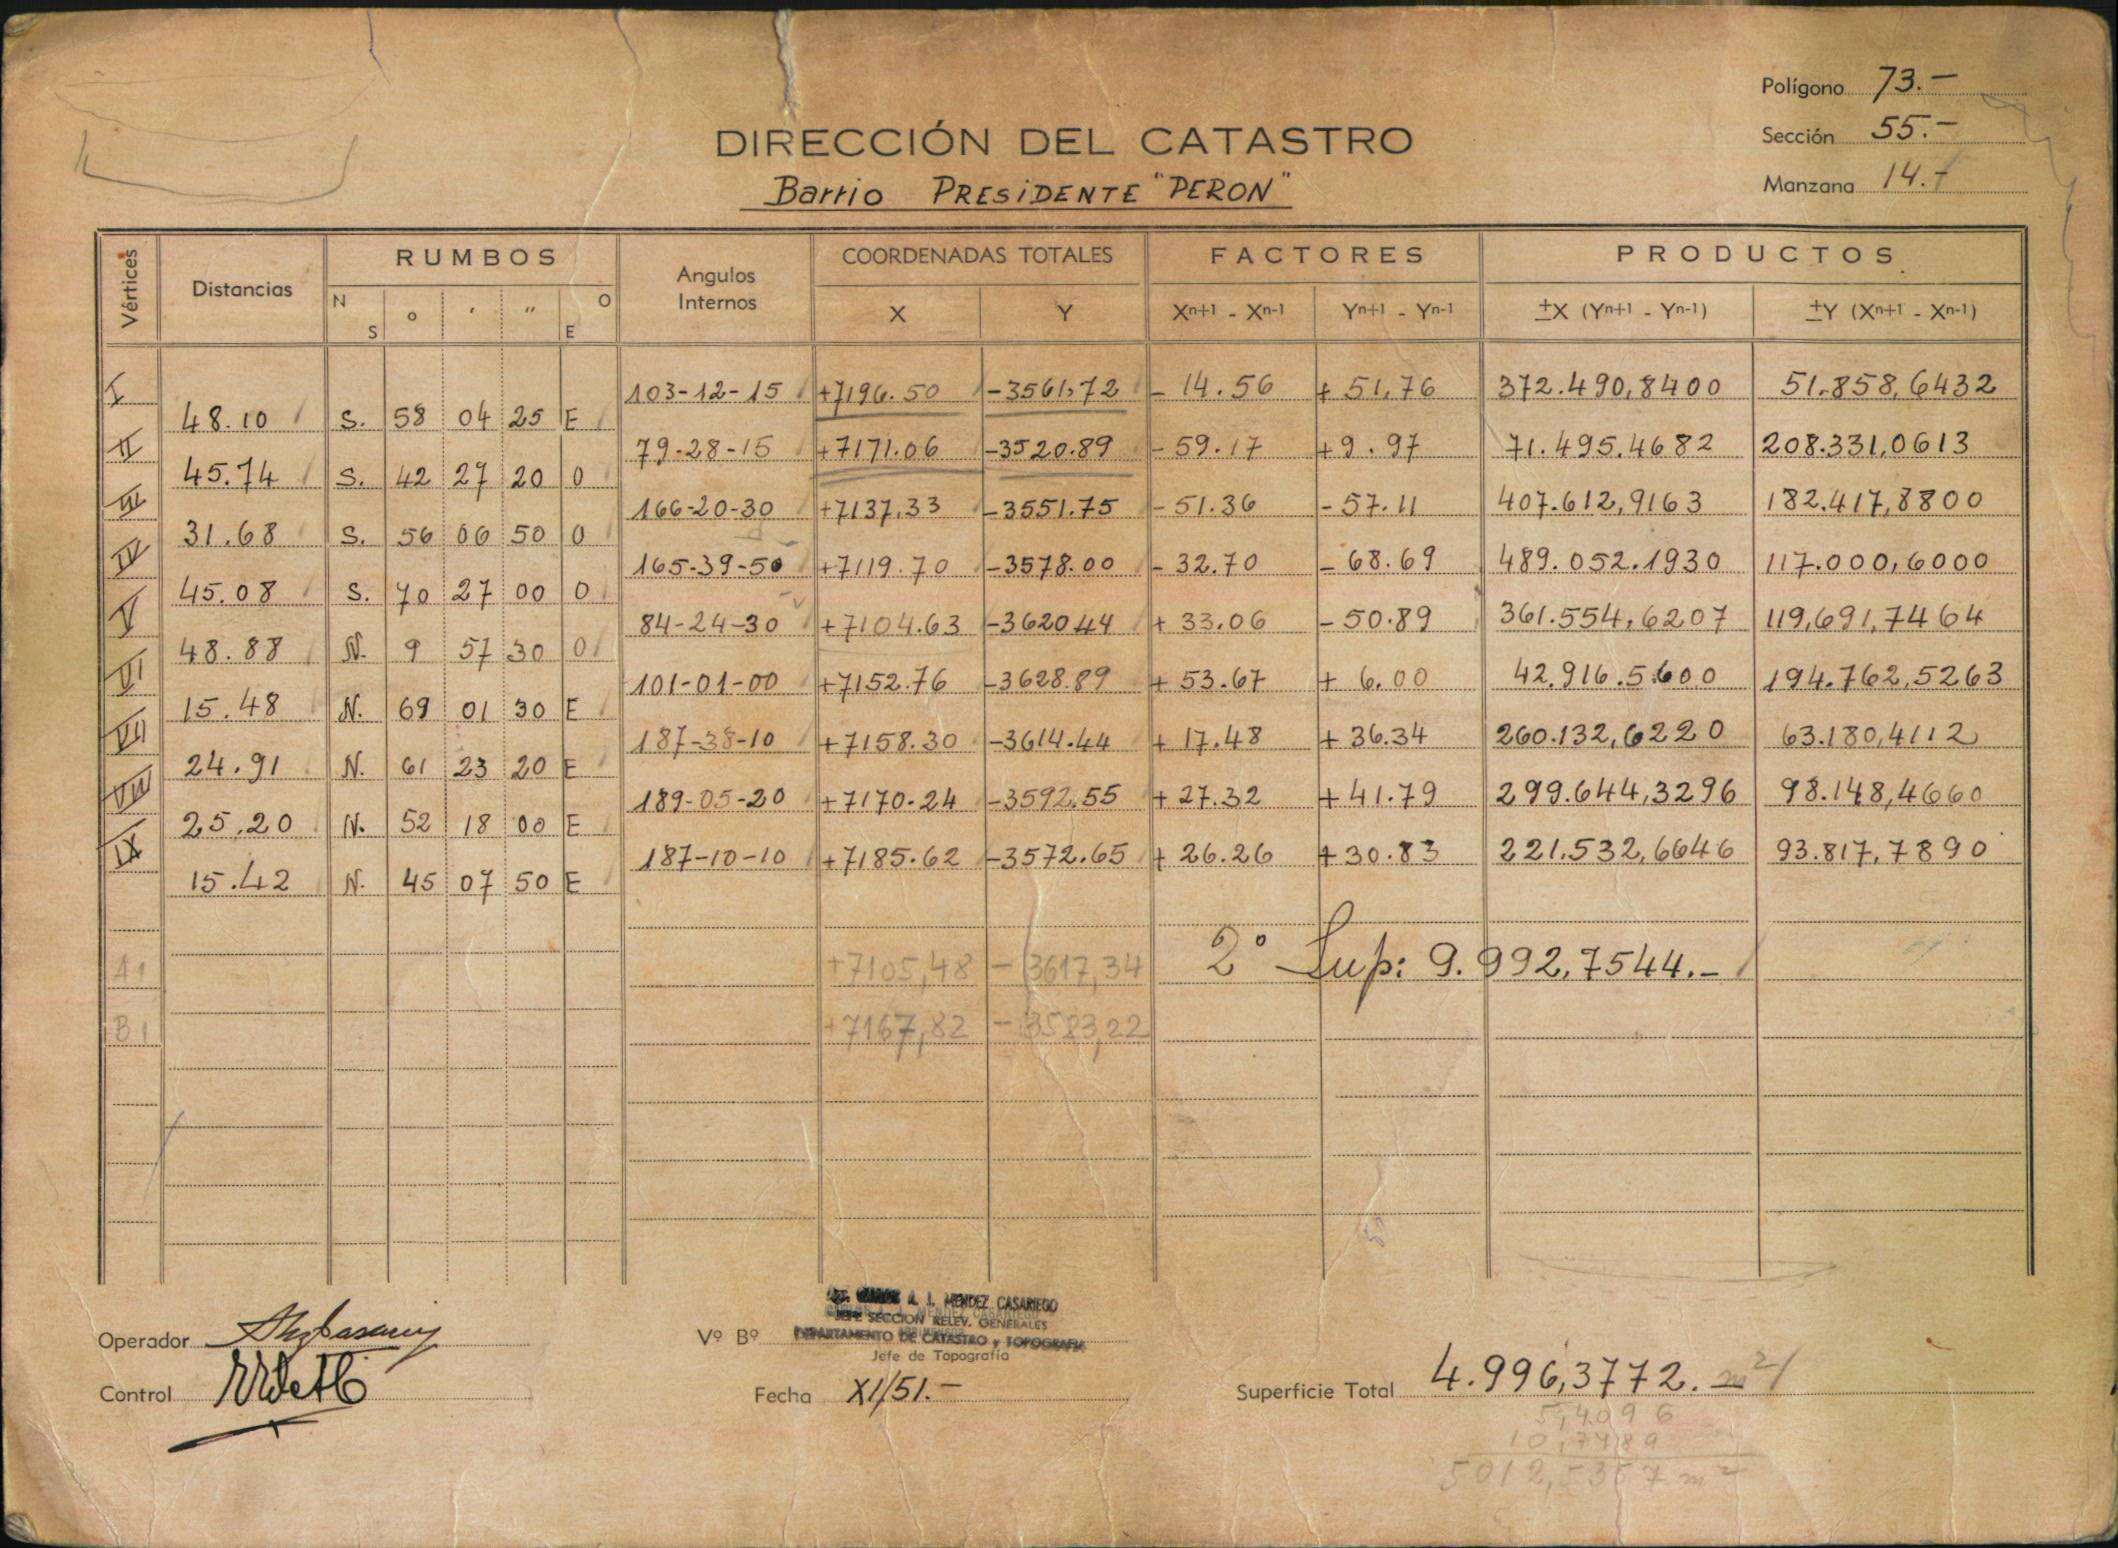 Polígono 73.-
Sección 55.-
Manzana 14.-
DIRECCIÓN DEL CATASTRO
Barrio PRESIDENTE "PERON"
Vértices Distancias RUMBOS Angulos Internos COORDENADAS TOTALES FACTORES PRODUCTOS
N S ° ' " O E X Y Xn+1 - Xn-1 Yn+1 - Yn-1 ±X (Yn+1 - Yn-1) ±Y (Xn+1 - Xn-1)
I 103-12-15 +7196.50 -3561,72 - 14.56 + 51,76 372.490,8400 51.858,6432
48.10 S. 58 04 25 E
II 79-28-15 +7171.06 -3520.89 - 59.17 +9.97 71.495.4682 208.331,0613
45.74 S. 42 27 20 O
III 166-20-30 +7137,33 -3551.75 - 51.36 - 57.11 407.612,9163 182.417,8800
31.68 S. 56 06 50 O
IV 165-39-50 +7119.70 -3578.00 - 32.70 - 68.69 489.052.1930 117.000,6000
45.08 S. 70 27 00 O
V 84-24-30 +7104.63 -3620.44 + 33.06 - 50.89 361.554,6207 119,691,7464
48.88 N. 9 57 30 O
VI 101-01-00 +7152.76 -3628.89 + 53.67 + 6.00 42.916.5600 194.762,5263
15.48 N. 69 01 30 E
VII 187-38-10 +7158.30 -3614.44 + 17.48 + 36.34 260.132,6220 63.180,4112
24.91 N. 61 23 20 E
VIII 189-05-20 +7170.24 -3592.55 + 27.32 + 41.79 299.644,3296 98.148,4660
25.20 N. 52 18 00 E
IX 187-10-10 +7185.62 -3572.65 + 26.26 + 30.83 221.532,6646 93.817,7890
15.42 N. 45 07 50 E
A1 +7105,48 - 3617,34 2° Sup: 9.992,7544.-
B1 +7167,82 - 3583,22
A. J. MENDEZ CASARIEGO
JEFE SECCION RELEV. GENERALES
Operador Vº Bº DEPARTAMENTO DE CATASTRO y TOPOGRAFIA
Jefe de Topografía
Control Fecha XI/51.- Superficie Total 4.996,3772. m2
5,4096
10,7489
5012,5357 m2